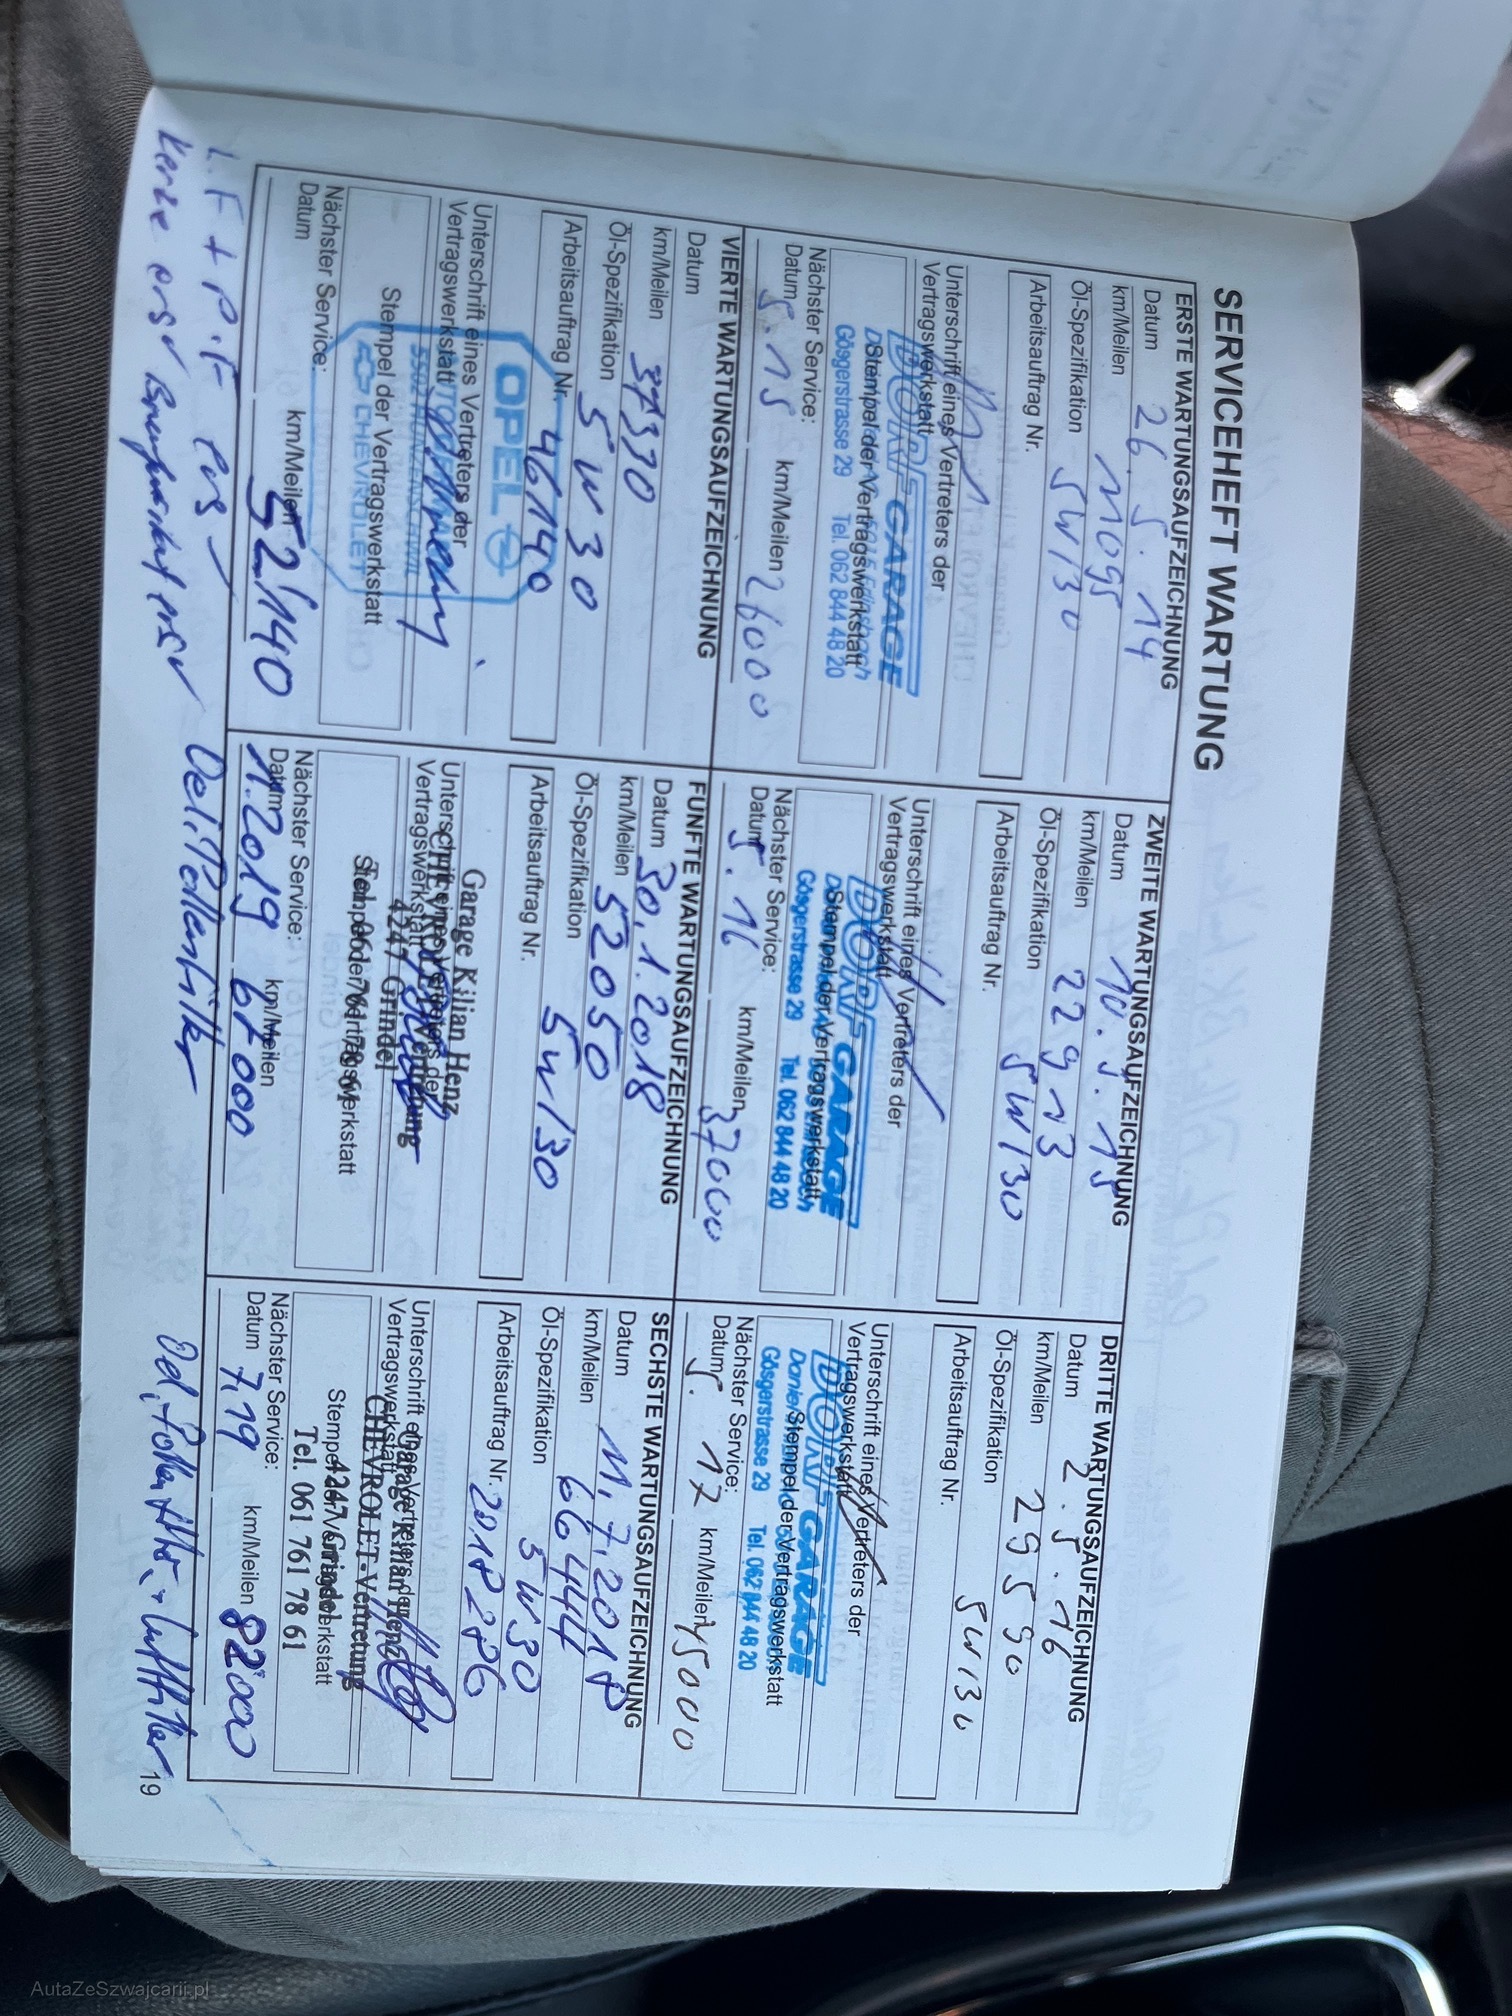 SERVICEHEFT WARTUNG
ERSTE WARTUNGSAUFZEICHNUNG
Datum 26. 5. 14
km/Meilen 11095
Öl-Spezifikation 5W/30
Arbeitsauftrag Nr.
Unterschrift eines Vertreters der
Vertragswerkstatt
DORF GARAGE
Stempel der Vertragswerkstatt
Gösgerstrasse 29 Tel. 062 844 48 20
Nächster Service:
Datum 5.15 km/Meilen 26000
ZWEITE WARTUNGSAUFZEICHNUNG
Datum 10. 5. 15
km/Meilen 22913
Öl-Spezifikation 5W/30
Arbeitsauftrag Nr.
Unterschrift eines Vertreters der
Vertragswerkstatt
DORF GARAGE
Stempel der Vertragswerkstatt
Gösgerstrasse 29 Tel. 062 844 48 20
Nächster Service:
Datum 5.16 km/Meilen 37000
DRITTE WARTUNGSAUFZEICHNUNG
Datum 2. 5. 16
km/Meilen 29590
Öl-Spezifikation 5W/30
Arbeitsauftrag Nr.
Unterschrift eines Vertreters der
Vertragswerkstatt
DORF GARAGE
Stempel der Vertragswerkstatt
Gösgerstrasse 29 Tel. 062 844 48 20
Nächster Service:
Datum 5. 17 km/Meilen 45000
VIERTE WARTUNGSAUFZEICHNUNG
Datum
km/Meilen 37330
Öl-Spezifikation 5W30
Arbeitsauftrag Nr. 46140
OPEL
Unterschrift eines Vertreters der
Vertragswerkstatt
Stempel der Vertragswerkstatt
CHEVROLET
Nächster Service:
Datum km/Meilen 52'140
FÜNFTE WARTUNGSAUFZEICHNUNG
Datum 30.1.2018
km/Meilen 52050
Öl-Spezifikation 5W/30
Arbeitsauftrag Nr.
Garage Kilian Henz
Unterschrift eines Vertreters der
Vertragswerkstatt
4247 Grindel
Stempel der Vertragswerkstatt
Tel. 061 761 78 61
Nächster Service:
Datum 1.2019 km/Meilen 67000
SECHSTE WARTUNGSAUFZEICHNUNG
Datum 11.7.2018
km/Meilen 66444
Öl-Spezifikation 5W30
Arbeitsauftrag Nr. 2018286
Unterschrift eines Vertreters der
Garage Kilian Henz
Vertragswerkstatt
CHEVROLET-Vertretung
4247 Grindel
Stempel der Vertragswerkstatt
Tel. 061 761 78 61
Nächster Service:
Datum 7.19 km/Meilen 82000
L.F + P.F
Oel, Pollenfilter
Oel, Pollenfilter, Luftfilter
19
AutaZeSzwajcarii.pl